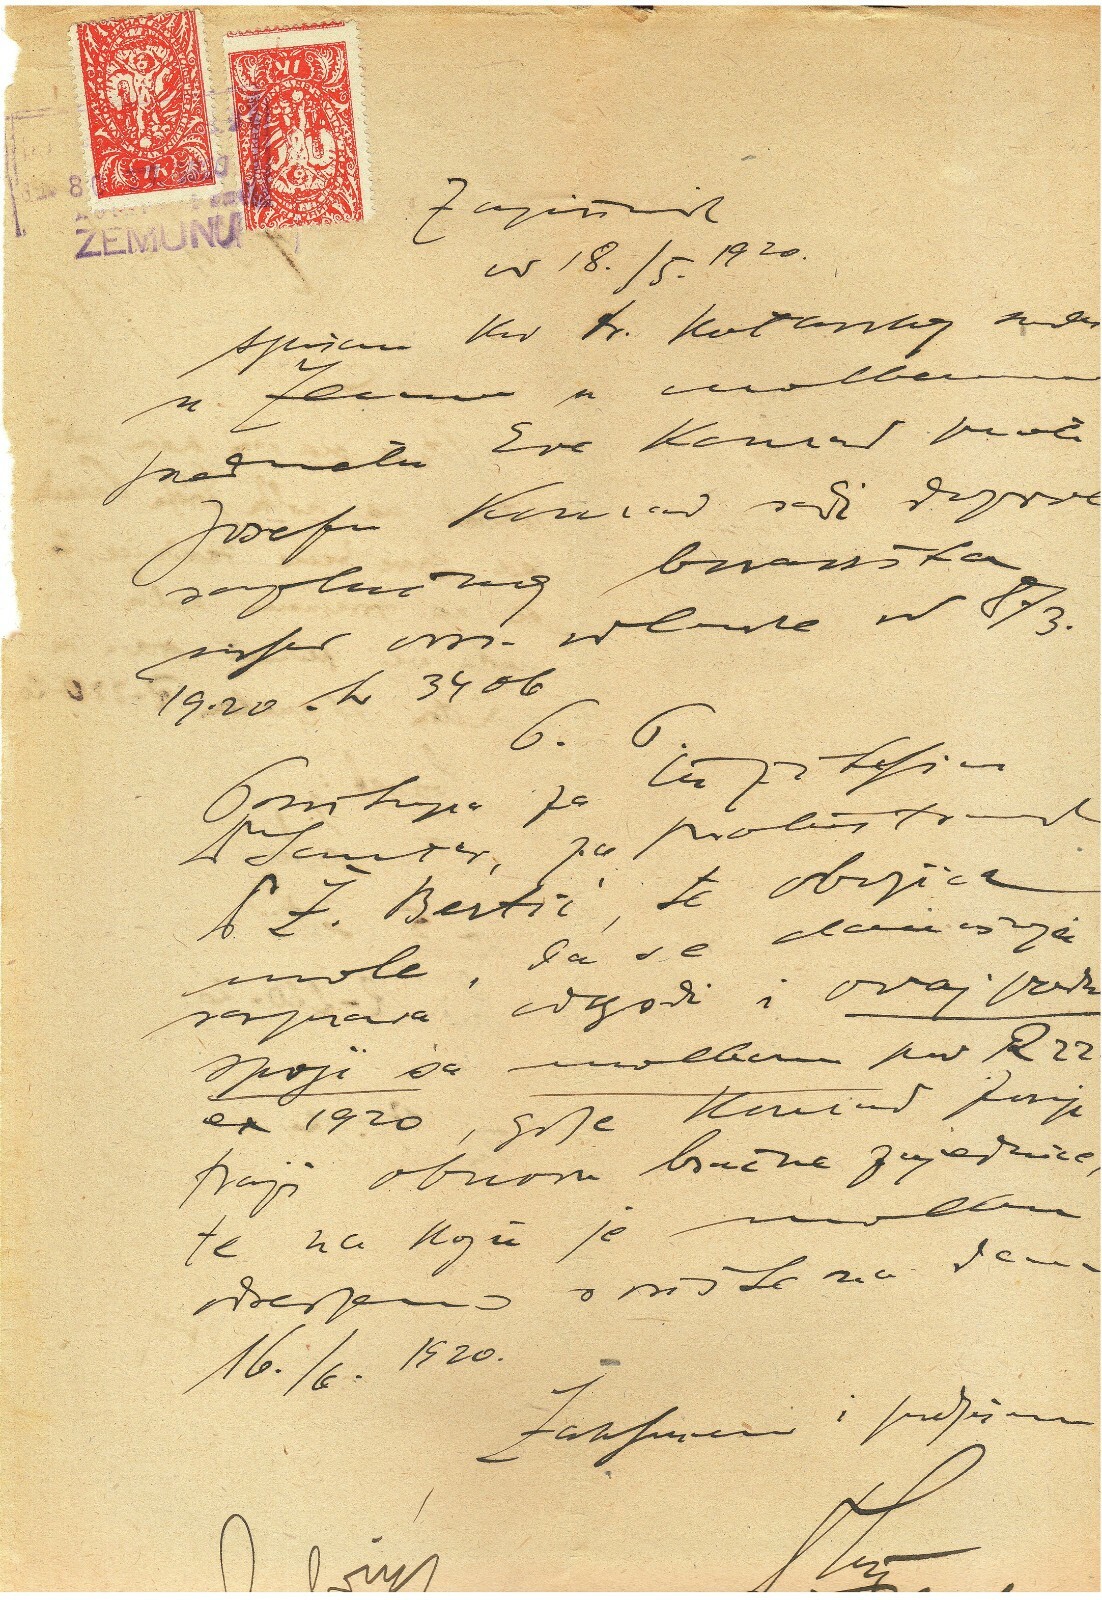 ZEMUNU
Zapisnik
od 18./5. 1920.
spisan kod kr. kotarskog suda
u Zemunu u molbenom
predmetu Eve Konrad proti
Josefu Konrad radi dozvole
razlučnog boravišta
usljed ovos. odluke od 8/3.
1920. br 3406
G. G.
Pristupa za tužiteljicu
Dr, za protustranku
Dr Ž. Bertić, te obojica
mole, da se današnja
rasprava odgodi i ovaj predm
spoji sa molbom pod R 22
ex 1920, gdje Konrad
traži obnovu bračne zajednice,
te na koju je molbu
odredjeno ročište na dan
16./6. 1920.
Zaključeno i potpisano